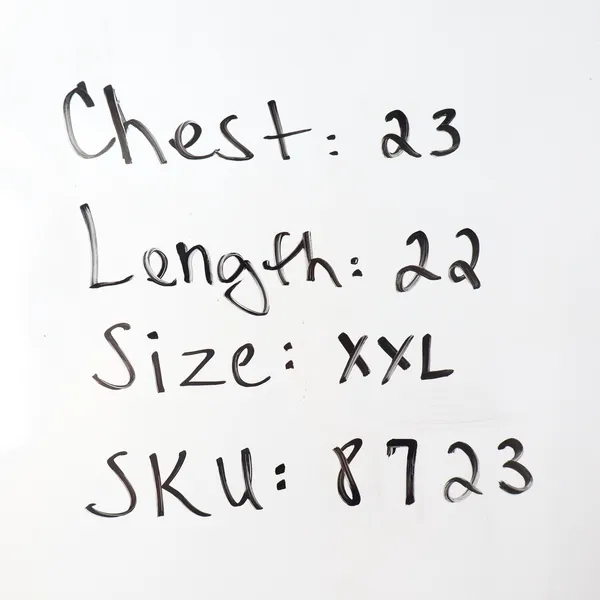 Chest: 23
Length: 22
Size: XXL
SKU: 8723